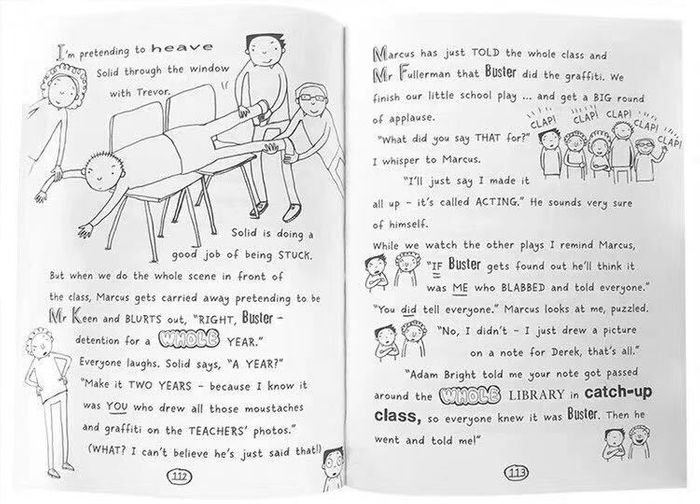 I'm pretending to heave
Solid through the window
with Trevor.
Solid is doing a
good job of being STUCK.
But when we do the whole scene in front of
the class, Marcus gets carried away pretending to be
Mr Keen and BLURTS out, "RIGHT, Buster -
detention for a WHOLE YEAR."
Everyone laughs. Solid says, "A YEAR?"
"Make it TWO YEARS - because I know it
was YOU who drew all those moustaches
and graffiti on the TEACHERS' photos."
(WHAT? I can't believe he's just said that!)
112
Marcus has just TOLD the whole class and
Mr Fullerman that Buster did the graffiti. We
finish our little school play ... and get a BIG round
of applause.
CLAP! CLAP! CLAP! CLAP! CLAP!
"What did you say THAT for?"
I whisper to Marcus.
"I'll just say I made it
all up - it's called ACTING." He sounds very sure
of himself.
While we watch the other plays I remind Marcus,
"IF Buster gets found out he'll think it
was ME who BLABBED and told everyone."
"You did tell everyone." Marcus looks at me, puzzled.
"No, I didn't - I just drew a picture
on a note for Derek, that's all."
"Adam Bright told me your note got passed
around the WHOLE LIBRARY in catch-up
class, so everyone knew it was Buster. Then he
went and told me!"
113